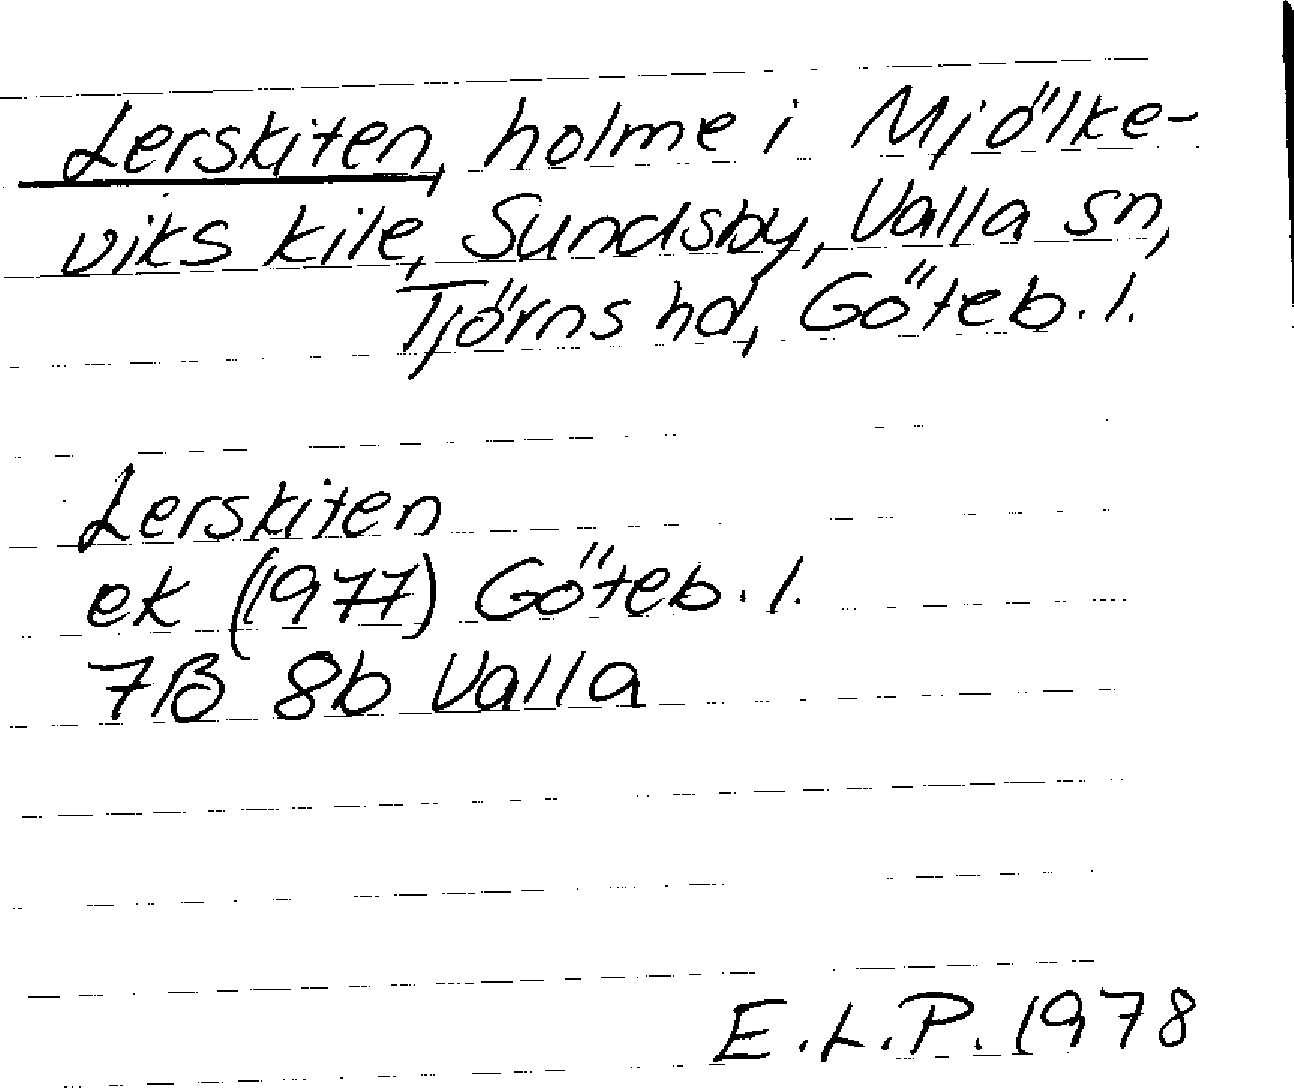 Lerskiten, holme i Mjölke-
viks kile, Sundsby, Valla sn,
Tjörns hd, Göteb. l.
Lerskiten
ek (1977) Göteb. l.
7B 8b Valla
E.L.P. 1978